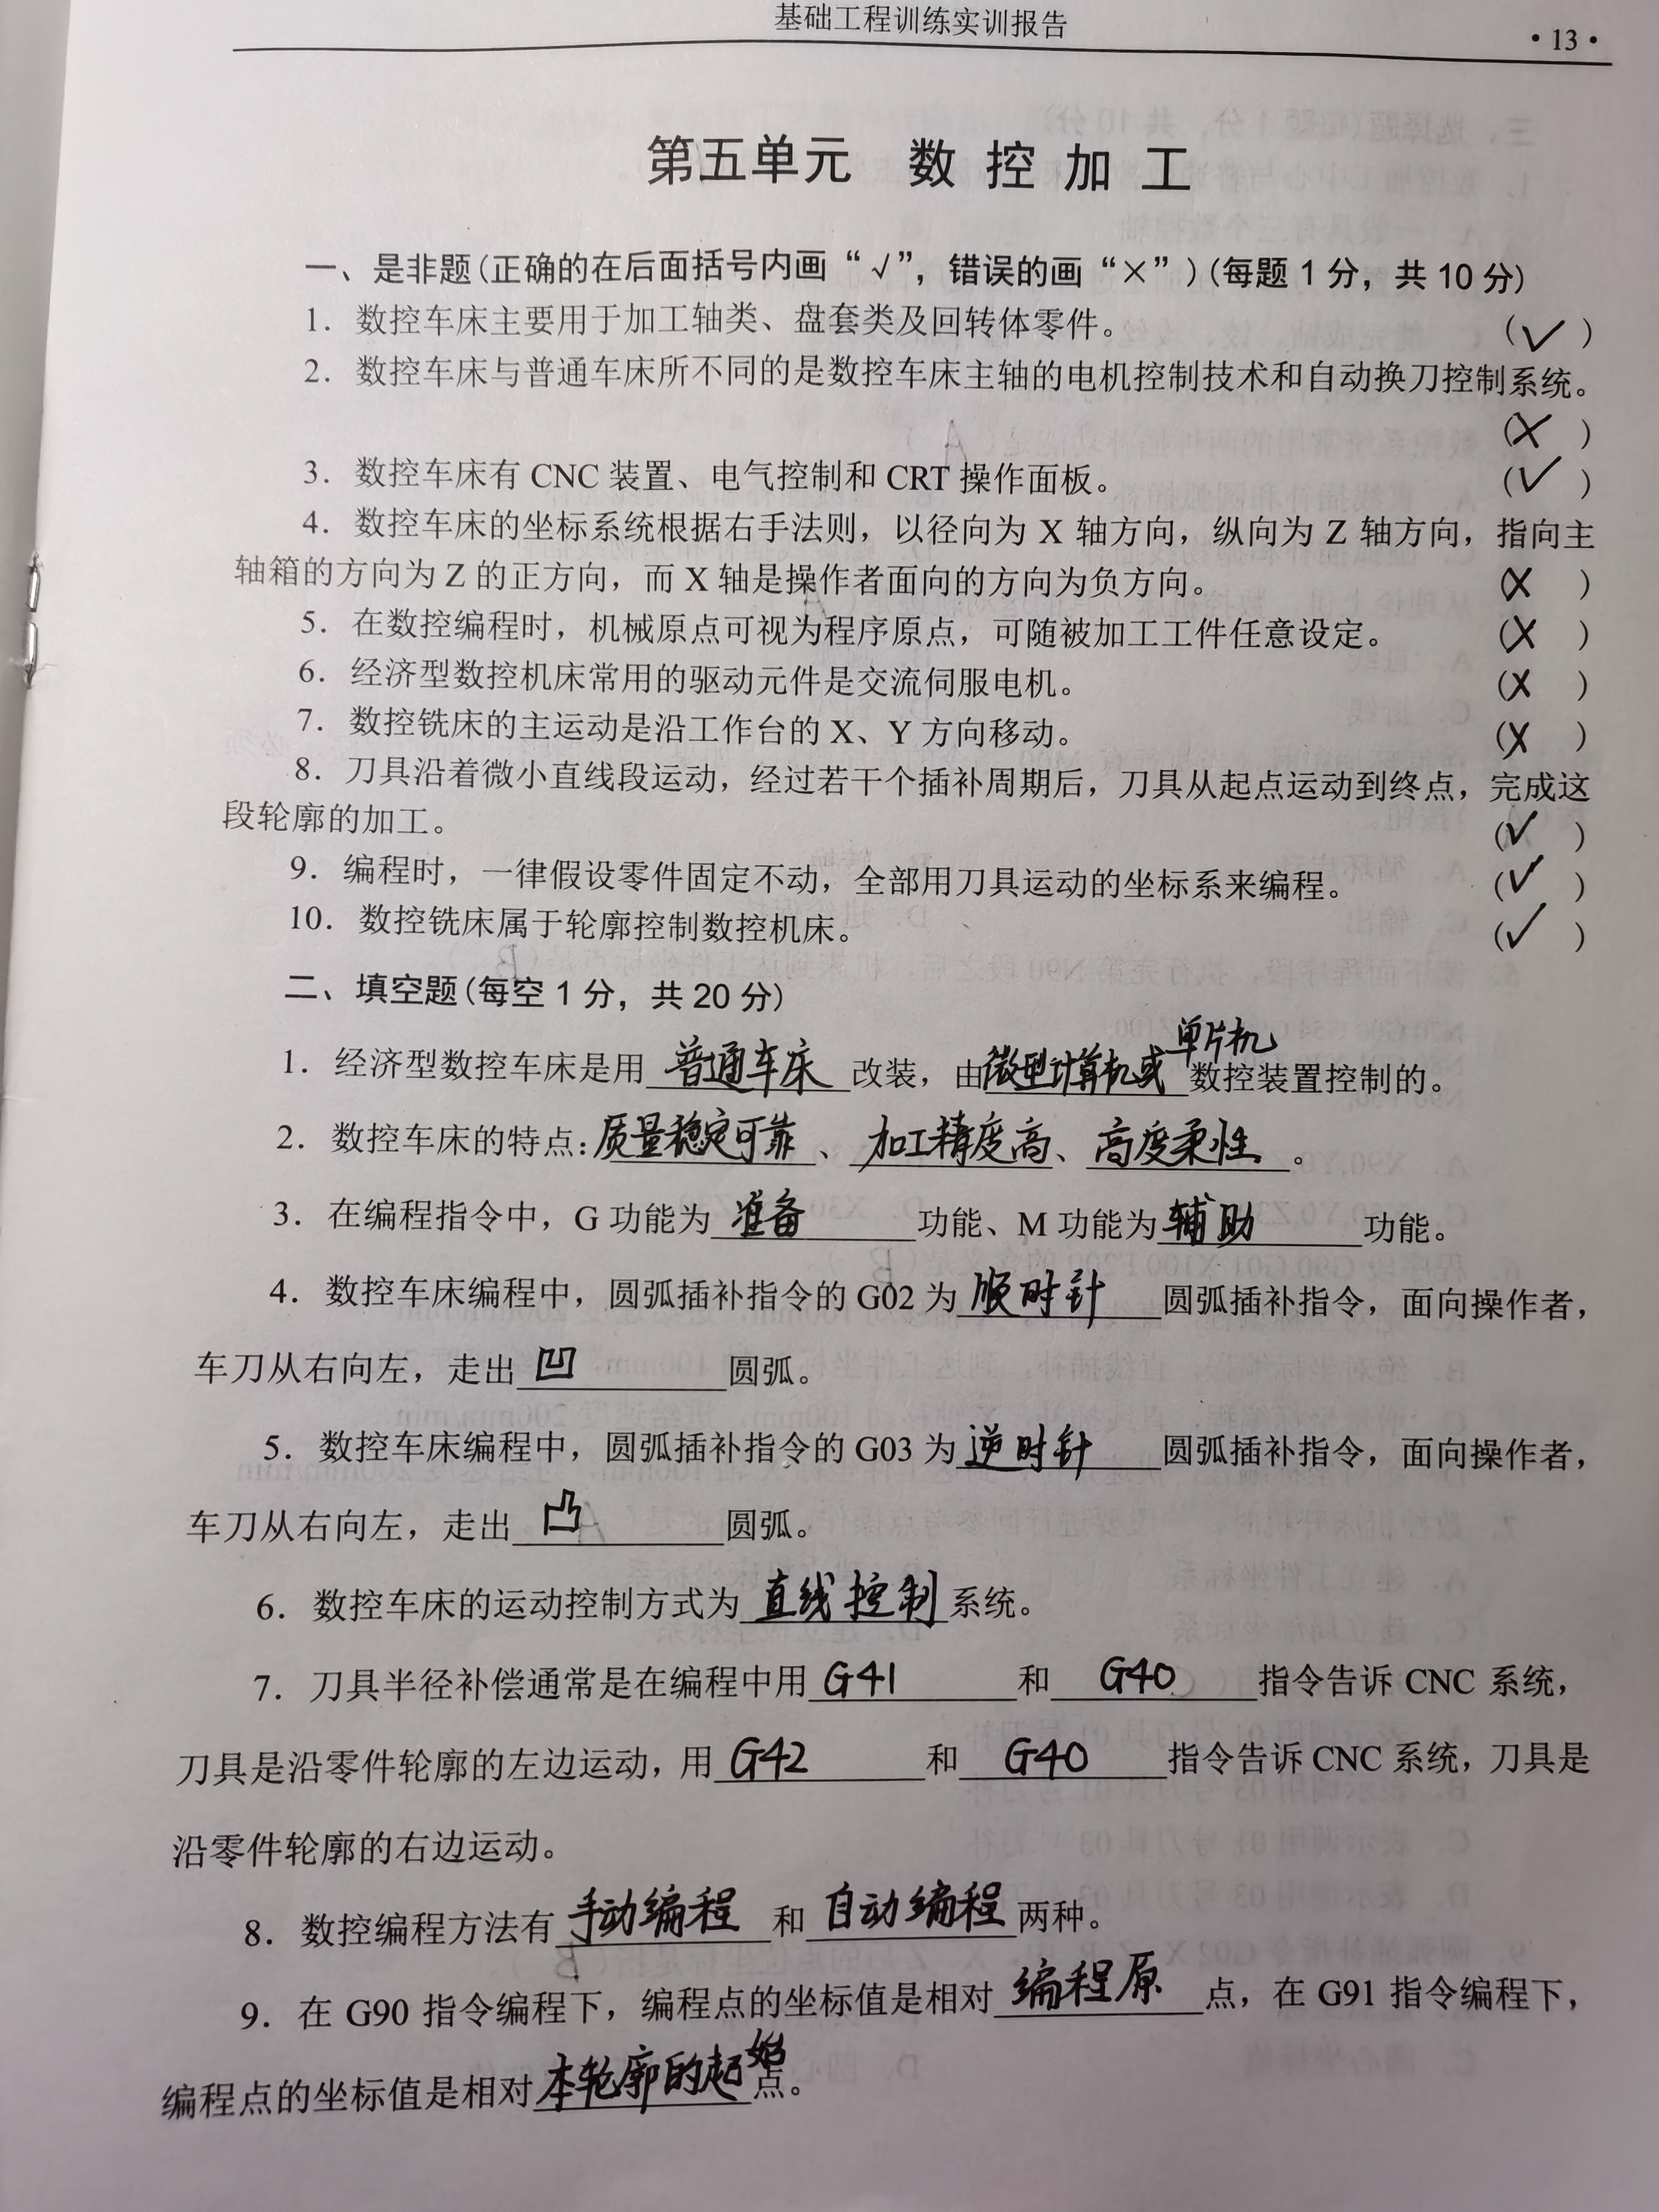 基础工程训练实训报告
·13·
第五单元 数控加工
一、是非题(正确的在后面括号内画“√”，错误的画“×”)(每题1分，共10分)
1．数控车床主要用于加工轴类、盘套类及回转体零件。 (√)
2．数控车床与普通车床所不同的是数控车床主轴的电机控制技术和自动换刀控制系统。
(×)
3．数控车床有 CNC 装置、电气控制和 CRT 操作面板。 (√)
4．数控车床的坐标系统根据右手法则，以径向为 X 轴方向，纵向为 Z 轴方向，指向主
轴箱的方向为 Z 的正方向，而 X 轴是操作者面向的方向为负方向。 (×)
5．在数控编程时，机械原点可视为程序原点，可随被加工工件任意设定。 (×)
6．经济型数控机床常用的驱动元件是交流伺服电机。 (×)
7．数控铣床的主运动是沿工作台的 X、Y 方向移动。 (×)
8．刀具沿着微小直线段运动，经过若干个插补周期后，刀具从起点运动到终点，完成这
段轮廓的加工。 (√)
9．编程时，一律假设零件固定不动，全部用刀具运动的坐标系来编程。 (√)
10．数控铣床属于轮廓控制数控机床。 (√)
二、填空题(每空1分，共20分)
1．经济型数控车床是用 普通车床 改装，由微型计算机或单片机数控装置控制的。
2．数控车床的特点:质量稳定可靠、加工精度高、高度柔性。
3．在编程指令中，G 功能为 准备 功能、M 功能为 辅助 功能。
4．数控车床编程中，圆弧插补指令的 G02 为 顺时针 圆弧插补指令，面向操作者，
车刀从右向左，走出 凹 圆弧。
5．数控车床编程中，圆弧插补指令的 G03 为 逆时针 圆弧插补指令，面向操作者，
车刀从右向左，走出 凸 圆弧。
6．数控车床的运动控制方式为 直线控制 系统。
7．刀具半径补偿通常是在编程中用 G41 和 G40 指令告诉 CNC 系统，
刀具是沿零件轮廓的左边运动，用 G42 和 G40 指令告诉 CNC 系统，刀具是
沿零件轮廓的右边运动。
8．数控编程方法有 手动编程 和 自动编程 两种。
9．在 G90 指令编程下，编程点的坐标值是相对 编程原 点，在 G91 指令编程下，
编程点的坐标值是相对 本轮廓的起始 点。